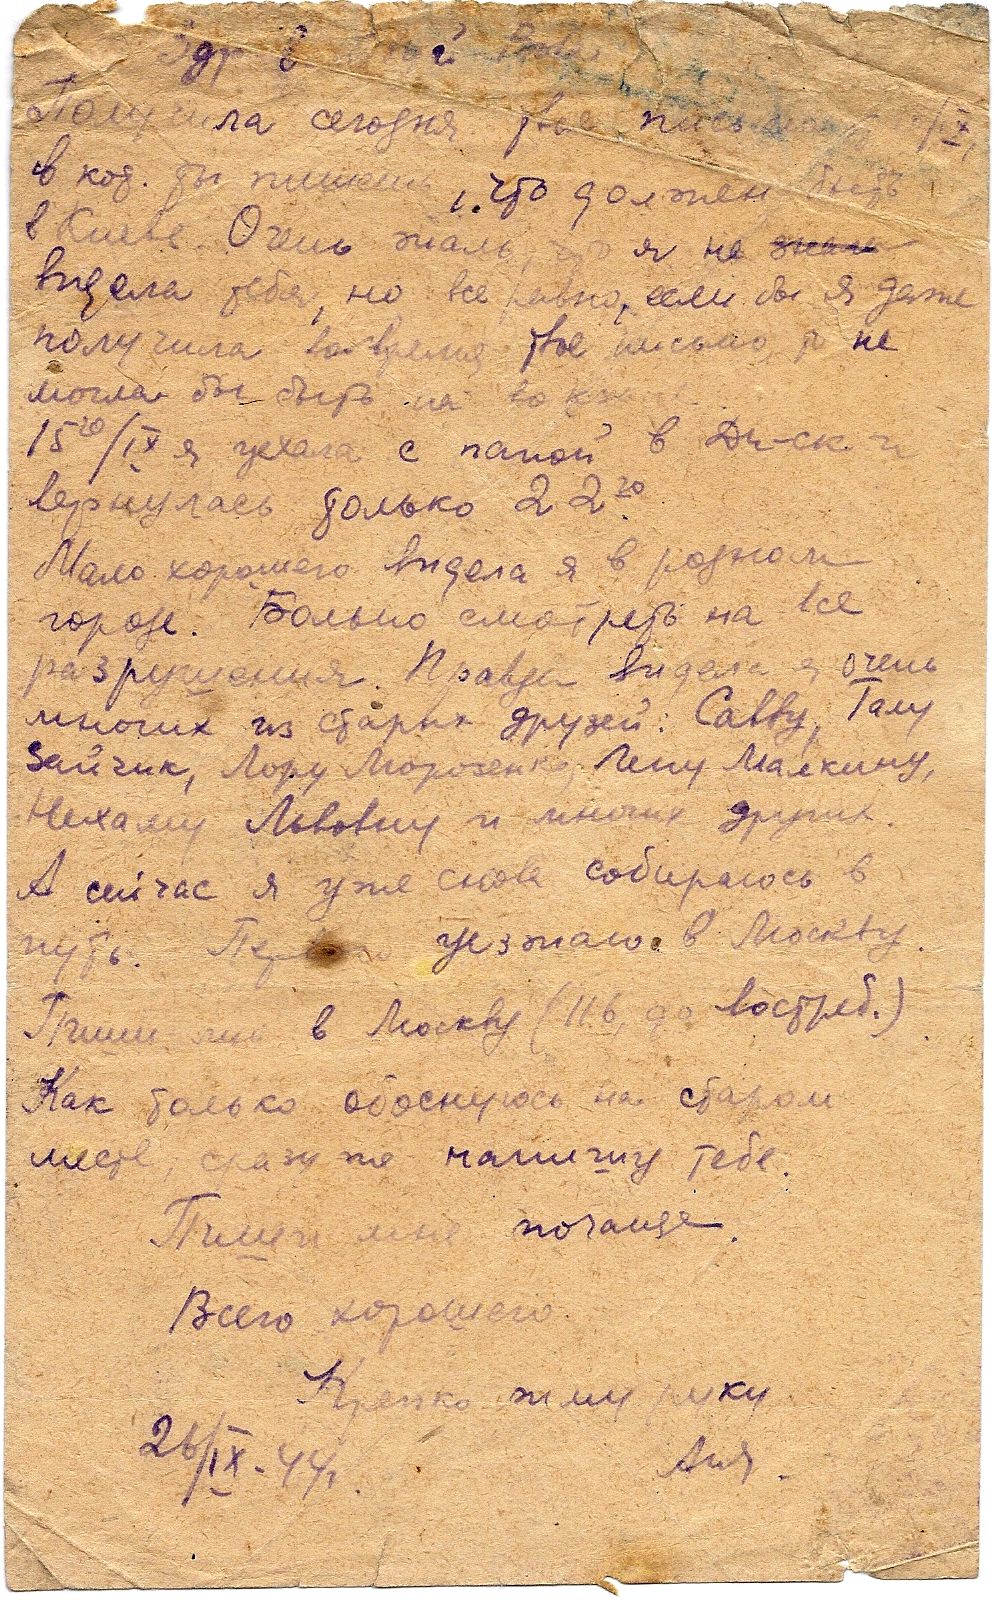 Получила сегодня твое письмо /IX,
в кот. ты пишешь, что должен быть
в Киеве. Очень жаль, что я не знала
видела тебя, но все равно, если бы я даже
получила во время твое письмо, я не
могла бы быть на
15²⁰/IX я уехала с папой в Дн-ск и
вернулась только 22²⁰.
Мало хорошего видела я в родном
городе. Больно смотреть на все
разрушения. Правда видела я очень
многих из старых друзей: Савву, Галу
Зайчик, Лору Морозенко, Лену Малкину,
Нехаму Львовну и многих других.
А сейчас я уже снова собираюсь в
путь. уезжаю в Москву.
Пиши мне в Москву (116, до востреб.)
Как только обоснуюсь на старом
месте, сразу же напишу тебе.
Пиши мне почаще.
Всего хорошего.
Крепко жму руку
26/IX-44г. Аня.